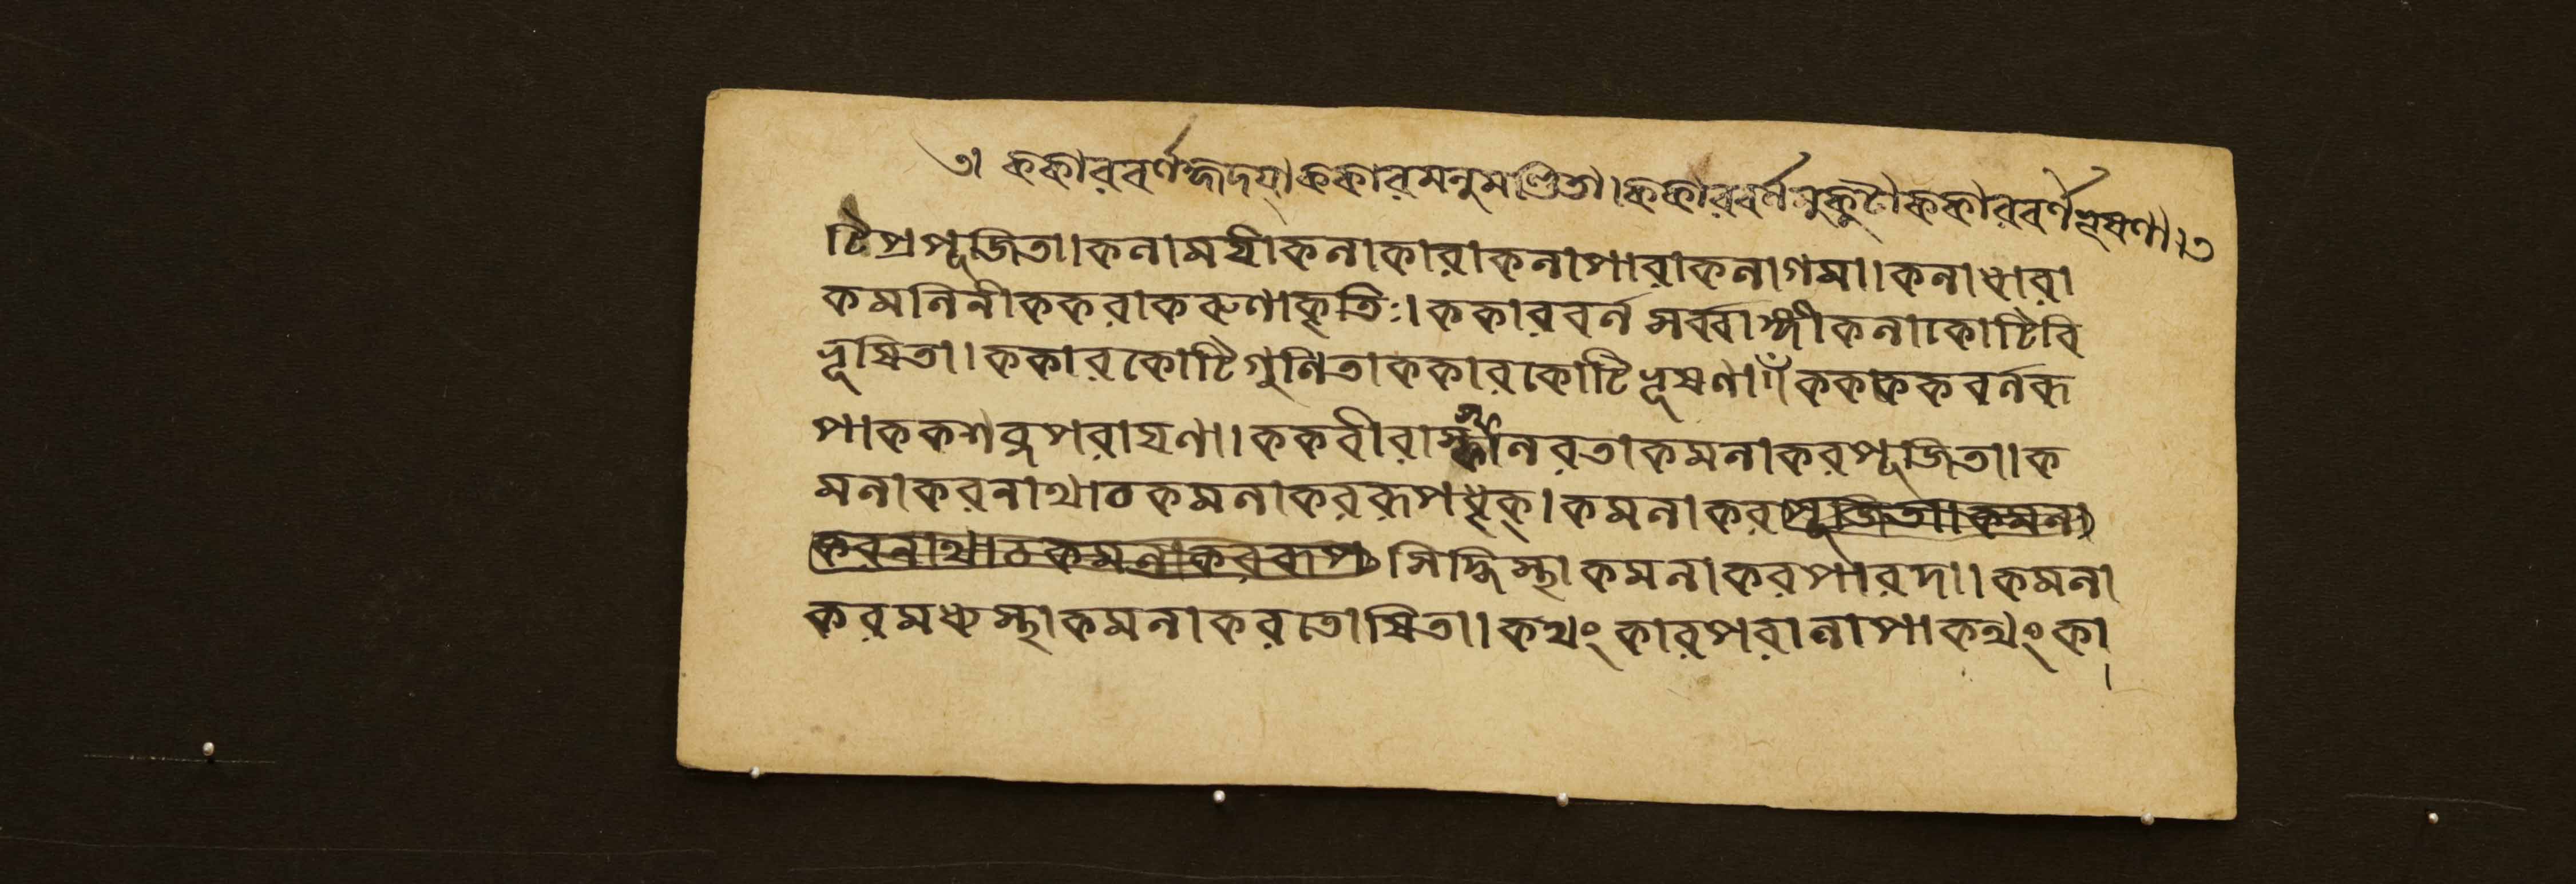 ৩। ককারবর্ণহৃদয়া ককারমনুমণ্ডিতা। ককারবর্ণমুকুটা ককারবর্ণভূষণা।। ৩
টিপ্রপূজিতা। কলাময়ী কলাকারা কলাপারা কলাগমা। কলাধারা
কমলিনী ককরা করুণাকৃতিঃ। ককারবর্ন সর্ব্বাঙ্গী কলাকোটিবি
ভূষিতা। ককারকোটিগুনিতা ককারকোটিভূষণা ককককবর্নরূ
পা ককশব্দপরায়ণা। ককবীরাস্ফালরতা কমলাকরপূজিতা। ক
মলাকরনাথা চ কমলাকররূপধৃক্। কমলাকর পূজিতা। কমলা
করনাথা চ কমলাকররূপ সিদ্ধিস্থা কমলাকরপারদা। কমলা
করমধ্যস্থা কমলাকরতোষিতা। কথংকারপরালাপা কথংকা